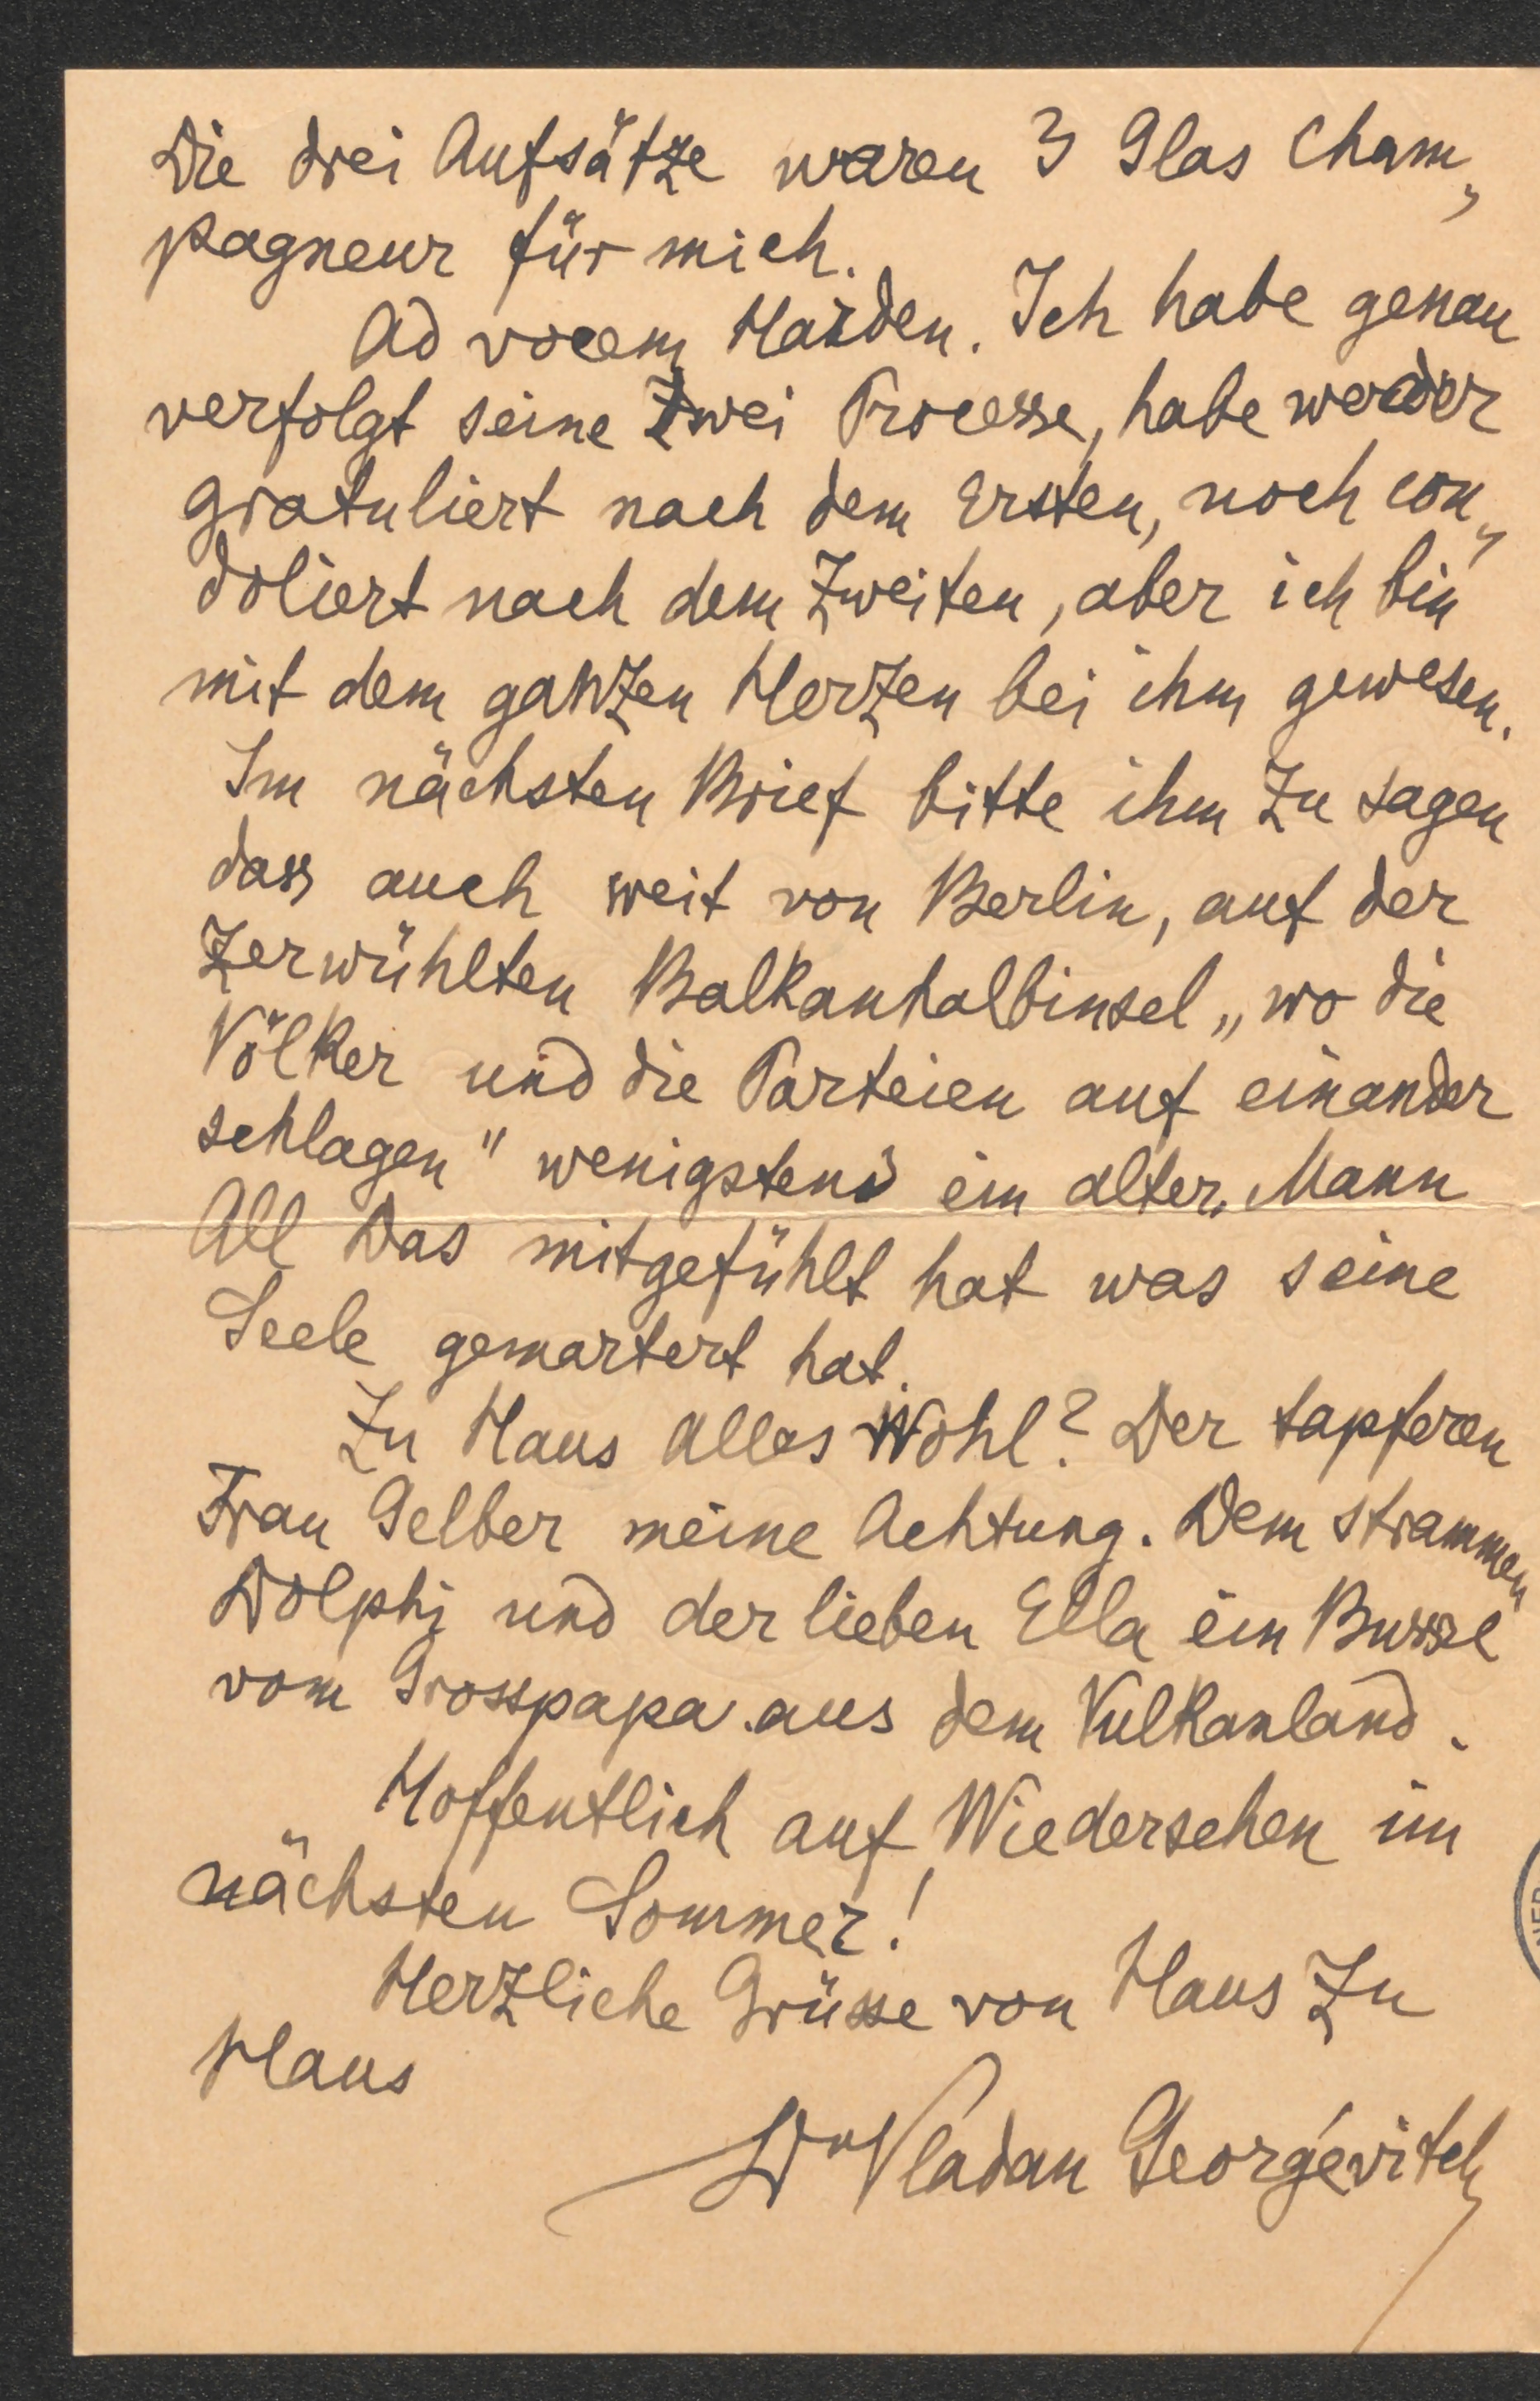 Die drei Aufsätze waren 3 Glas Cham„
pagneur für mich.
Ad vocem Harden. Ich habe genau
verfolgt seine zwei Processe, habe weder
gratuliert nach dem Ersten, noch con„
doliert nach dem Zweiten, aber ich bin
mit dem ganzen Herzen bei ihm gewesen.
Im nächsten Brief bitte ihm zu sagen
dass auch weit von Berlin, auf der
zerwühlten Balkanhalbinsel „wo die
Völker und die Parteien auf einander
schlagen" wenigstens ein alter Mann
All Das mitgefühlt hat was seine
Seele gemartert hat.
Zu Haus Alles Wohl? Der tapferen
Frau Gelber meine Achtung. Dem strammen
Dolphi und der lieben Ella ein Bussel
vom Grosspapa aus dem Vulkanland.
Hoffentlich auf Wiedersehen im
nächsten Sommer!
Herzliche Grüsse von Haus zu
Haus
Dr Vladan Georgévitch